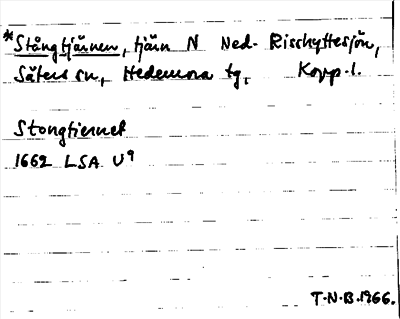 *Stångtjärnen, tjärn N Ned. Risshyttesjön,
Säters sn, Hedemora tg, Kopp. l.
Stongtiernet
1662 LSA U9
T.N.B. 1966.